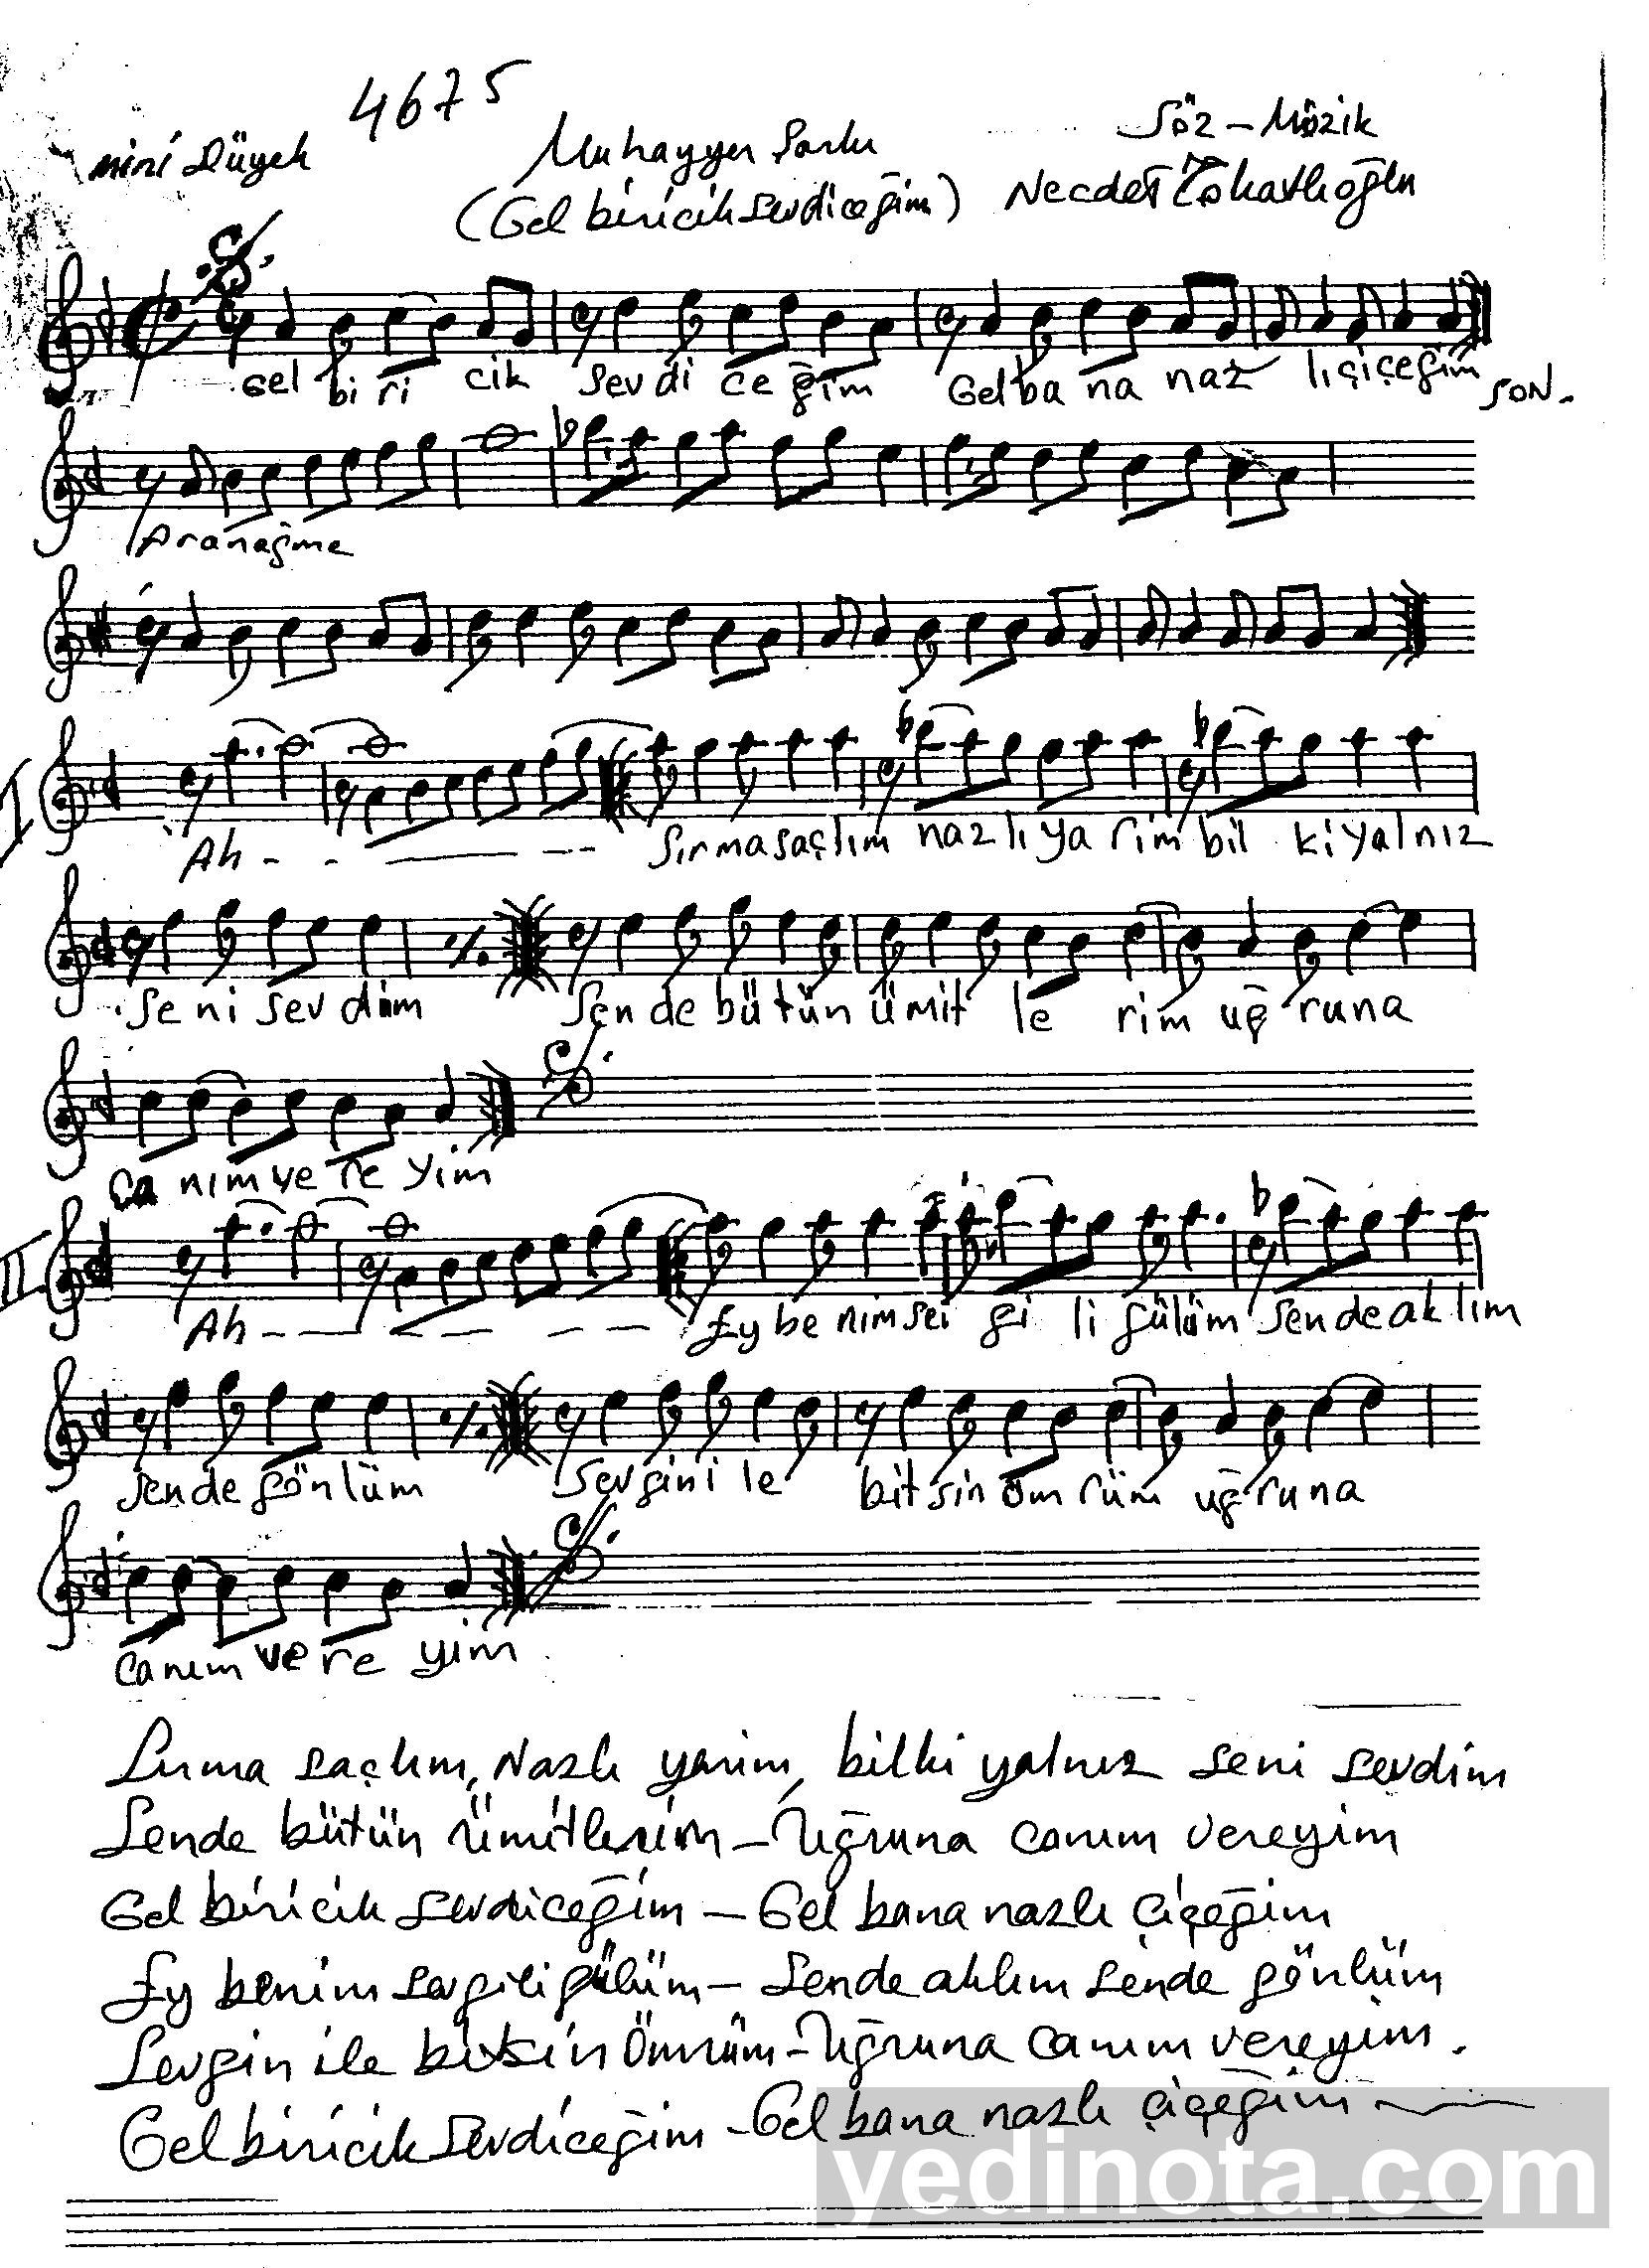 4675
Mini Düyek
Muhayyer Şarkı
Söz - Müzik
(Gel biricik sevdiceğim) Necdet Tokatlıoğlu
Gel bi ri cik sev di ce ğim Gel ba na naz lı çi çe ğim SON.
Aranağme
I
Ah - - - - - Sırma saçlım nazlı ya rim bil ki yalnız
se ni sev dim sen de bü tün ümit le rim uğ runa
ca nım ve re yim
II
Ah - - - - - - Ey be nim sev gi li gülüm sen de ak lım
sen de gön lüm sevgin i le bit sin öm rüm uğ runa
canım ve re yim
Sırma saçlım, Nazlı yarim, bil ki yalnız seni sevdim
Sende bütün ümitlerim - Uğruna canım vereyim
Gel biricik sevdiceğim - Gel bana nazlı çiçeğim
Ey benim sevgili gülüm - Sende aklım sende gönlüm
Sevgin ile bitsin ömrüm - Uğruna canım vereyim.
Gel biricik sevdiceğim - Gel bana nazlı çiçeğim
yedinota.com